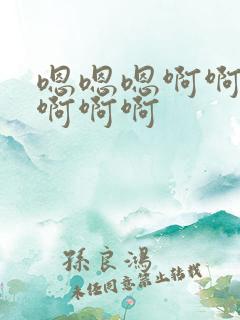 嗯嗯嗯啊啊
啊啊啊
孫良鴻
未经同意禁止转载